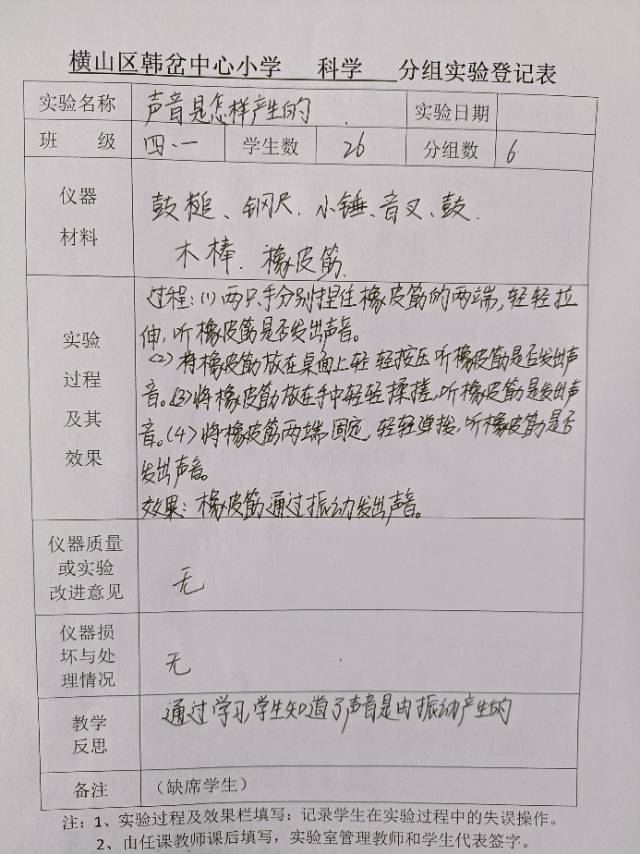 横山区韩岔中心小学 科学 分组实验登记表
实验名称 声音是怎样产生的 实验日期
班 级 四、一 学生数 26 分组数 6
仪器
材料
鼓槌、钢尺、小锤、音叉、鼓、
木棒、橡皮筋
实验
过程
及其
效果
过程:(1)两只手分别捏住橡皮筋的两端,轻轻拉
伸,听橡皮筋是否发出声音。
(2)将橡皮筋放在桌面上轻轻按压听橡皮筋是否发出声
音。(3)将橡皮筋放在手中轻轻揉搓,听橡皮筋是发出声
音。(4)将橡皮筋两端固定,轻轻弹拨,听橡皮筋是否
发出声音。
效果:橡皮筋通过振动发出声音。
仪器质量
或实验
改进意见
无
仪器损
坏与处
理情况
无
教学
反思
通过学习,学生知道了声音是由振动产生的
备注 (缺席学生)
注:1、实验过程及效果栏填写:记录学生在实验过程中的失误操作。
2、由任课教师课后填写,实验室管理教师和学生代表签字。